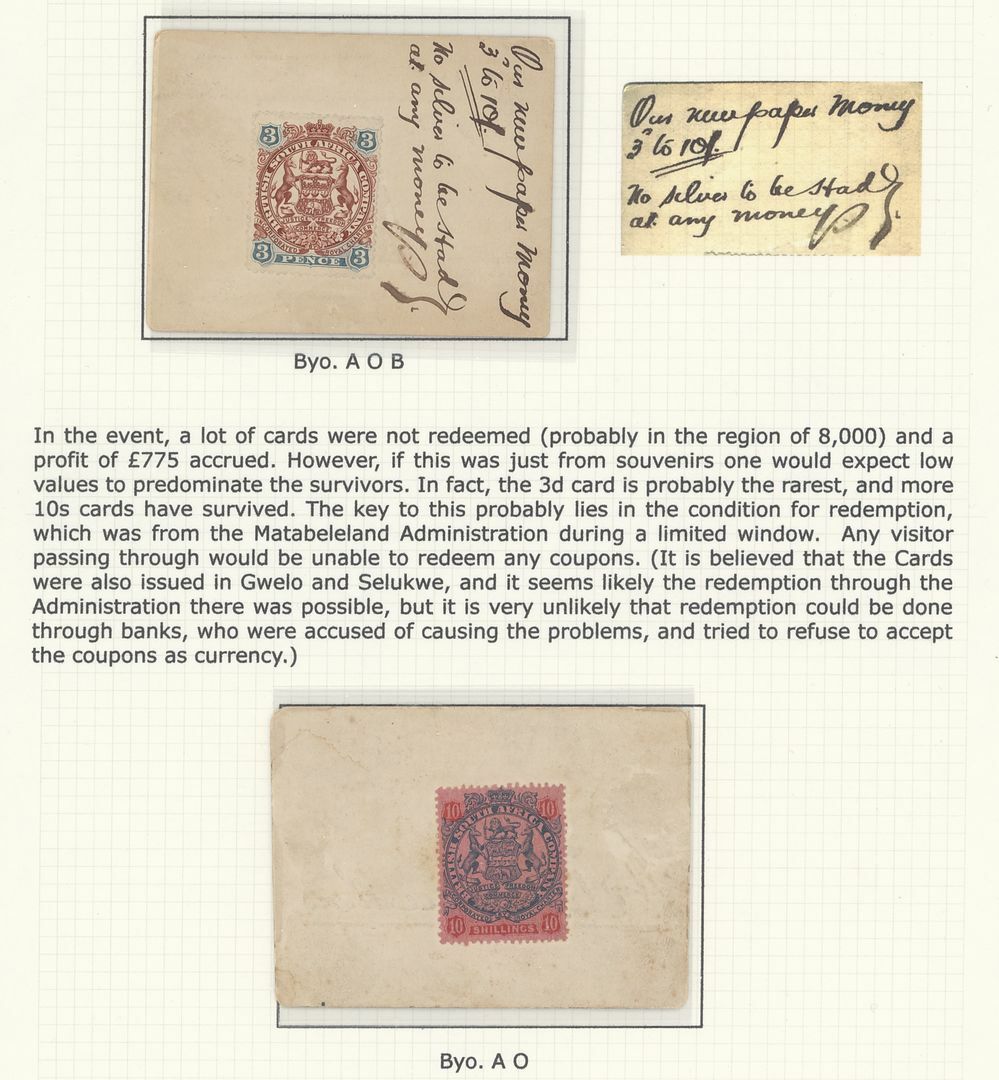 Our new paper Money
3ᵈ to 10/.
No silver to be Had
at any money
3 3
BRITISH SOUTH AFRICA COMPANY
JUSTICE FREEDOM
COMMERCE
INCORPORATED ROYAL CHARTER
3 PENCE 3
Our new paper Money
3ᵈ to 10/.
No silver to be Had
at any money
Byo. A O B
In the event, a lot of cards were not redeemed (probably in the region of 8,000) and a
profit of £775 accrued. However, if this was just from souvenirs one would expect low
values to predominate the survivors. In fact, the 3d card is probably the rarest, and more
10s cards have survived. The key to this probably lies in the condition for redemption,
which was from the Matabeleland Administration during a limited window.  Any visitor
passing through would be unable to redeem any coupons. (It is believed that the Cards
were also issued in Gwelo and Selukwe, and it seems likely the redemption through the
Administration there was possible, but it is very unlikely that redemption could be done
through banks, who were accused of causing the problems, and tried to refuse to accept
the coupons as currency.)
10 10
BRITISH SOUTH AFRICA COMPANY
JUSTICE FREEDOM
COMMERCE
INCORPORATED ROYAL CHARTER
10 SHILLINGS 10
Byo. A O